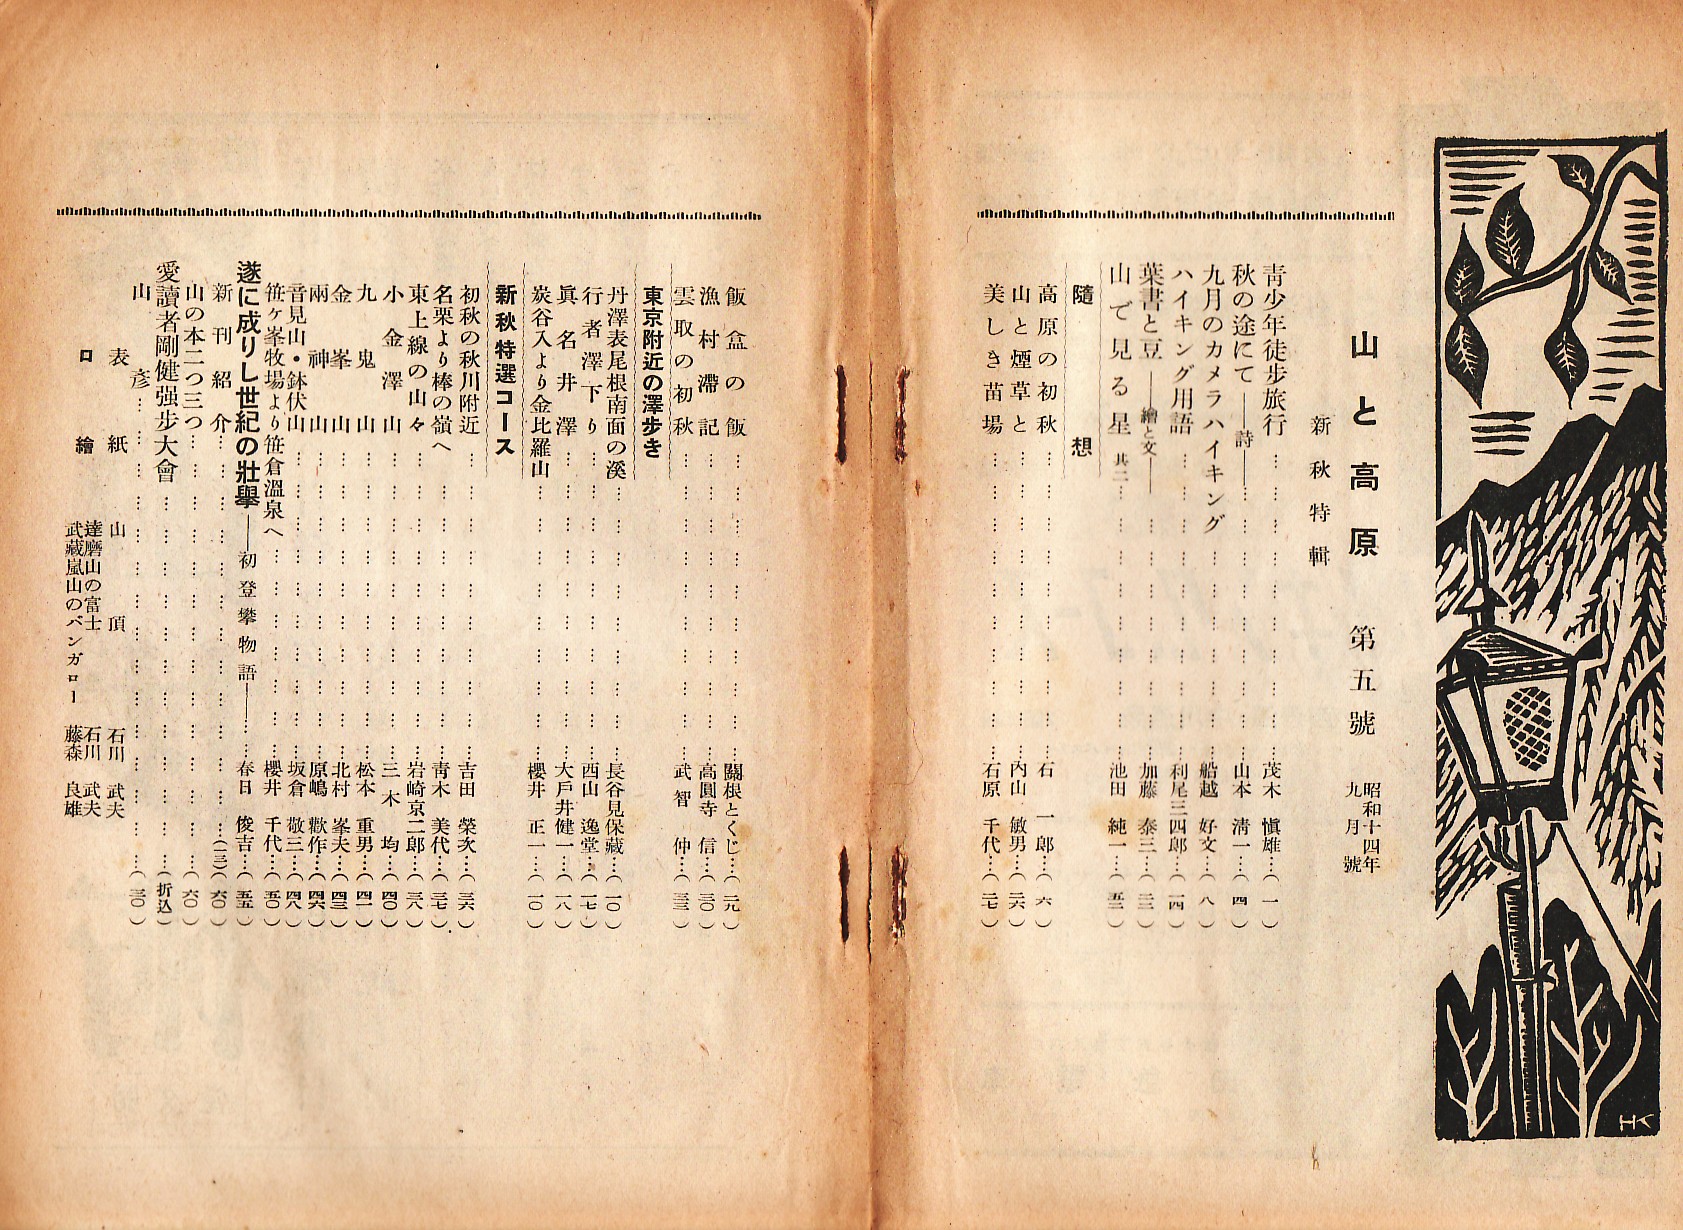 山と高原 第五號 昭和十四年九月號
新秋特輯
青少年徒步旅行………茂木 愼雄…(一)
秋の途にて——詩——………山本 淸一…(四)
九月のカメラハイキング………船越 好文…(八)
ハイキング用語………利尾三四郎…(一四)
葉書と豆——繪と文——………加藤 泰三…(三三)
山で見る星 其二………池田 純一…(五三)
隨想
高原の初秋………石 一郎…(六)
山と煙草と………內山 敏男…(二六)
美しき苗場………石原 千代…(二七)
飯盒の飯………關根とくじ…(二九)
漁村滯記………高圓寺 信…(三〇)
雲取の初秋………武智 仲…(三三)
東京附近の澤步き
丹澤表尾根南面の溪………長谷見保藏…(一〇)
行者澤下り………西山 逸堂…(一七)
眞名井澤………大戶井健一…(一八)
炭谷入より金比羅山………櫻井 正一…(一〇)
新秋特選コース
初秋の秋川附近………吉田 榮次…(三六)
名栗より棒の嶺へ………靑木 美代…(三七)
東上線の山々………岩崎京二郎…(三八)
小金澤山………三木 均…(四〇)
九鬼山………松本 重男…(四一)
金峯山………北村 峯夫…(四三)
兩神山………原嶋 歡作…(四六)
音見山・鉢伏山………坂倉 敬三…(四八)
笹ヶ峯牧場より笹倉溫泉へ………櫻井 千代…(五〇)
遂に成りし世紀の壯擧——初登攀物語——………春日 俊吉…(五五)
新刊紹介………(三)(六〇)
山の本二つ三つ………(六〇)
愛讀者剛健强步大會………(折込)
山彥………(三〇)
表紙 山頂 石川 武夫
口繪 達磨山の富士 石川 武夫
武藏嵐山のバンガロー 藤森 良雄